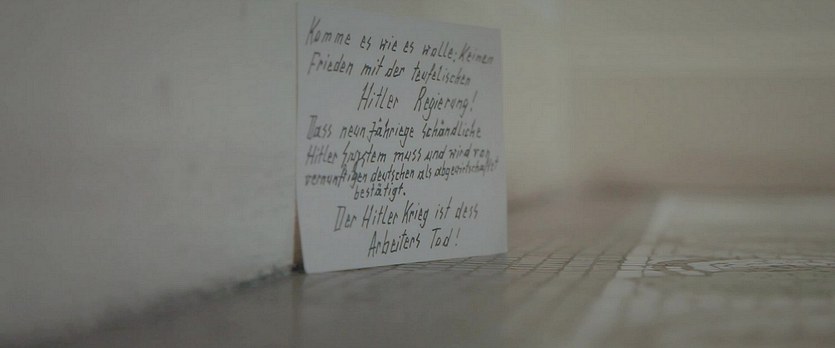 Komme es wie es wolle; Keinen
Frieden mit der teufelischen
Hitler Regierung!
Dass neun Jähriege schändliche
Hitler System muss und wird von
vernunftigen deutschen als abgewirtschaftet
bestätigt.
Der Hitler Krieg ist dess
Arbeiters Tod!